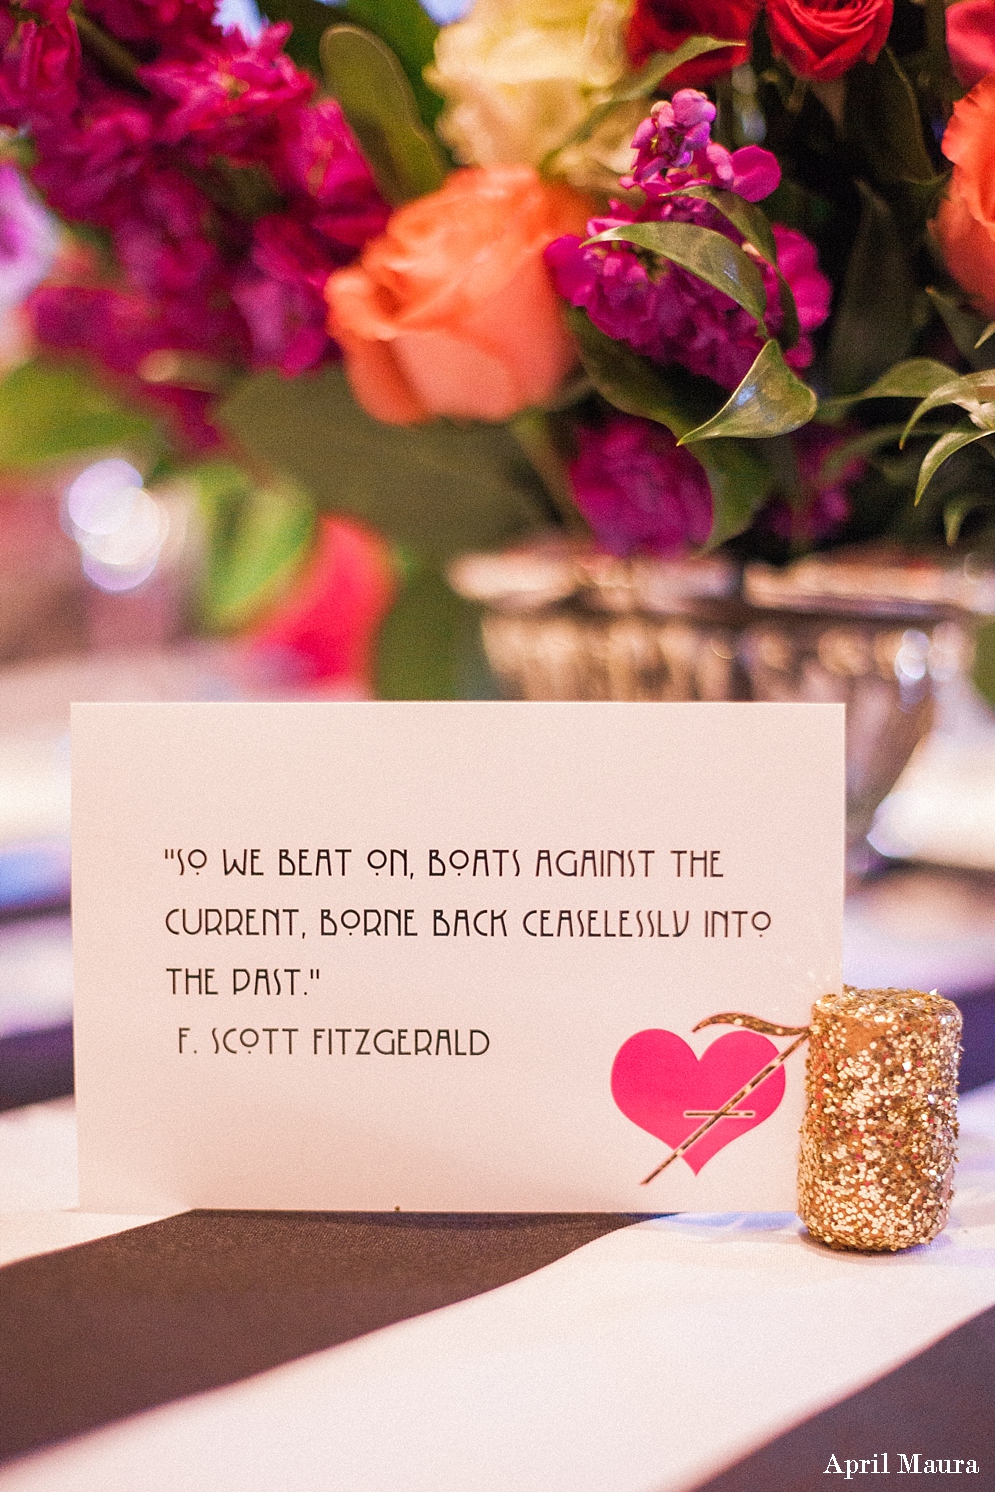 "SO WE BEAT ON, BOATS AGAINST THE
CURRENT, BORNE BACK CEASELESSLY INTO
THE PAST."
F. SCOTT FITZGERALD
April Maura